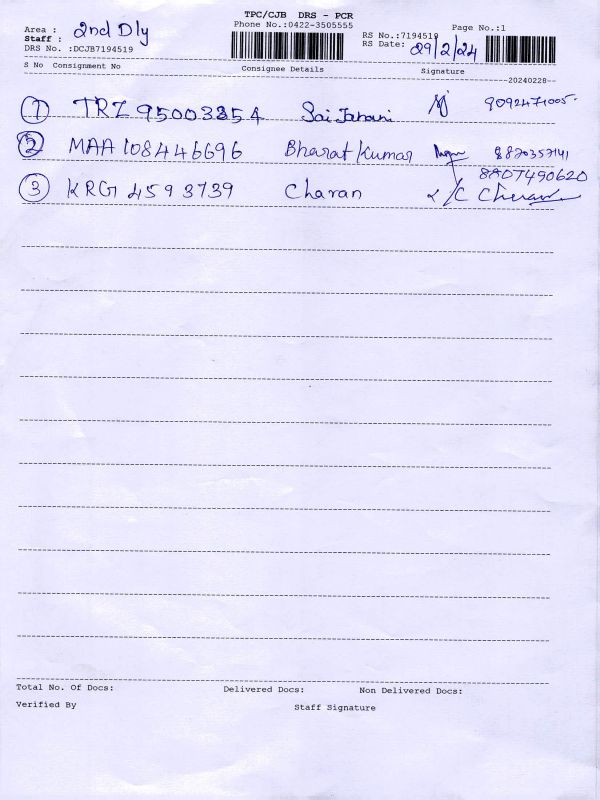 TPC/CJB DRS - PCR
Phone No.:0422-3505555
Page No.:1
Area : 2nd Dly
Staff :
DRS No. :DCJB7194519
RS No.:7194519
RS Date: 29/2/24
S No Consignment No Consignee Details Signature
20240228
1 TRZ 95003354 9092471005
2 MAA 108446696 Bharat Kumar 8820357141
8807490620
3 KRG 4593739 Charan
Total No. Of Docs: Delivered Docs: Non Delivered Docs:
Verified By Staff Signature